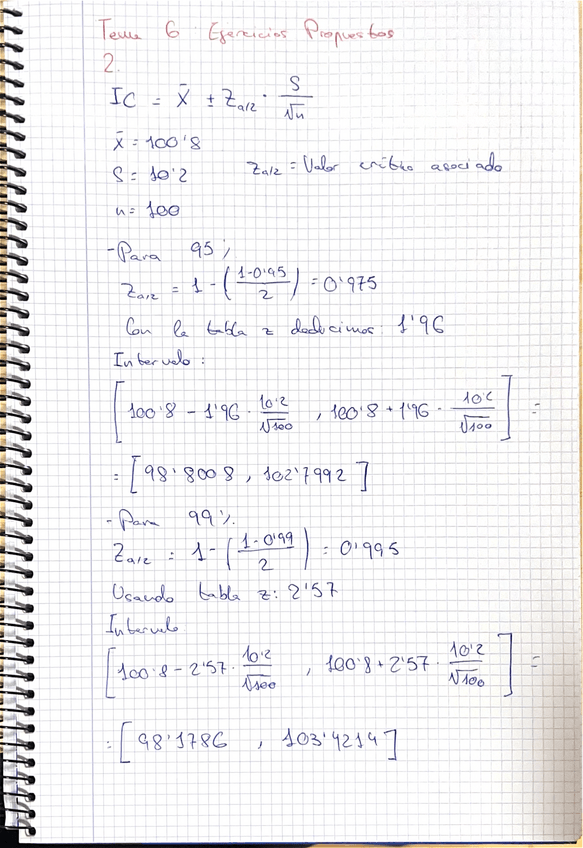 Tema 6 Ejercicios Propuestos
2.
IC = X̄ ± Za/2 · S/√n
x̄ = 100'8
S = 10'2   Za/2 = Valor crítico asociado
n = 100
- Para 95%
Za/2 = 1 - ((1-0'95)/2) = 0'975
Con la tabla z deducimos: 1'96
Intervalo:
[100'8 - 1'96 · 10'2/√100 , 100'8 + 1'96 · 10'2/√100] =
= [98'8008 , 102'7992]
- Para 99%.
Za/2 = 1 - ((1-0'99)/2) = 0'995
Usando tabla z: 2'57
Intervalo
[100'8 - 2'57 · 10'2/√100 , 100'8 + 2'57 · 10'2/√100] =
= [98'1786 , 103'4214]